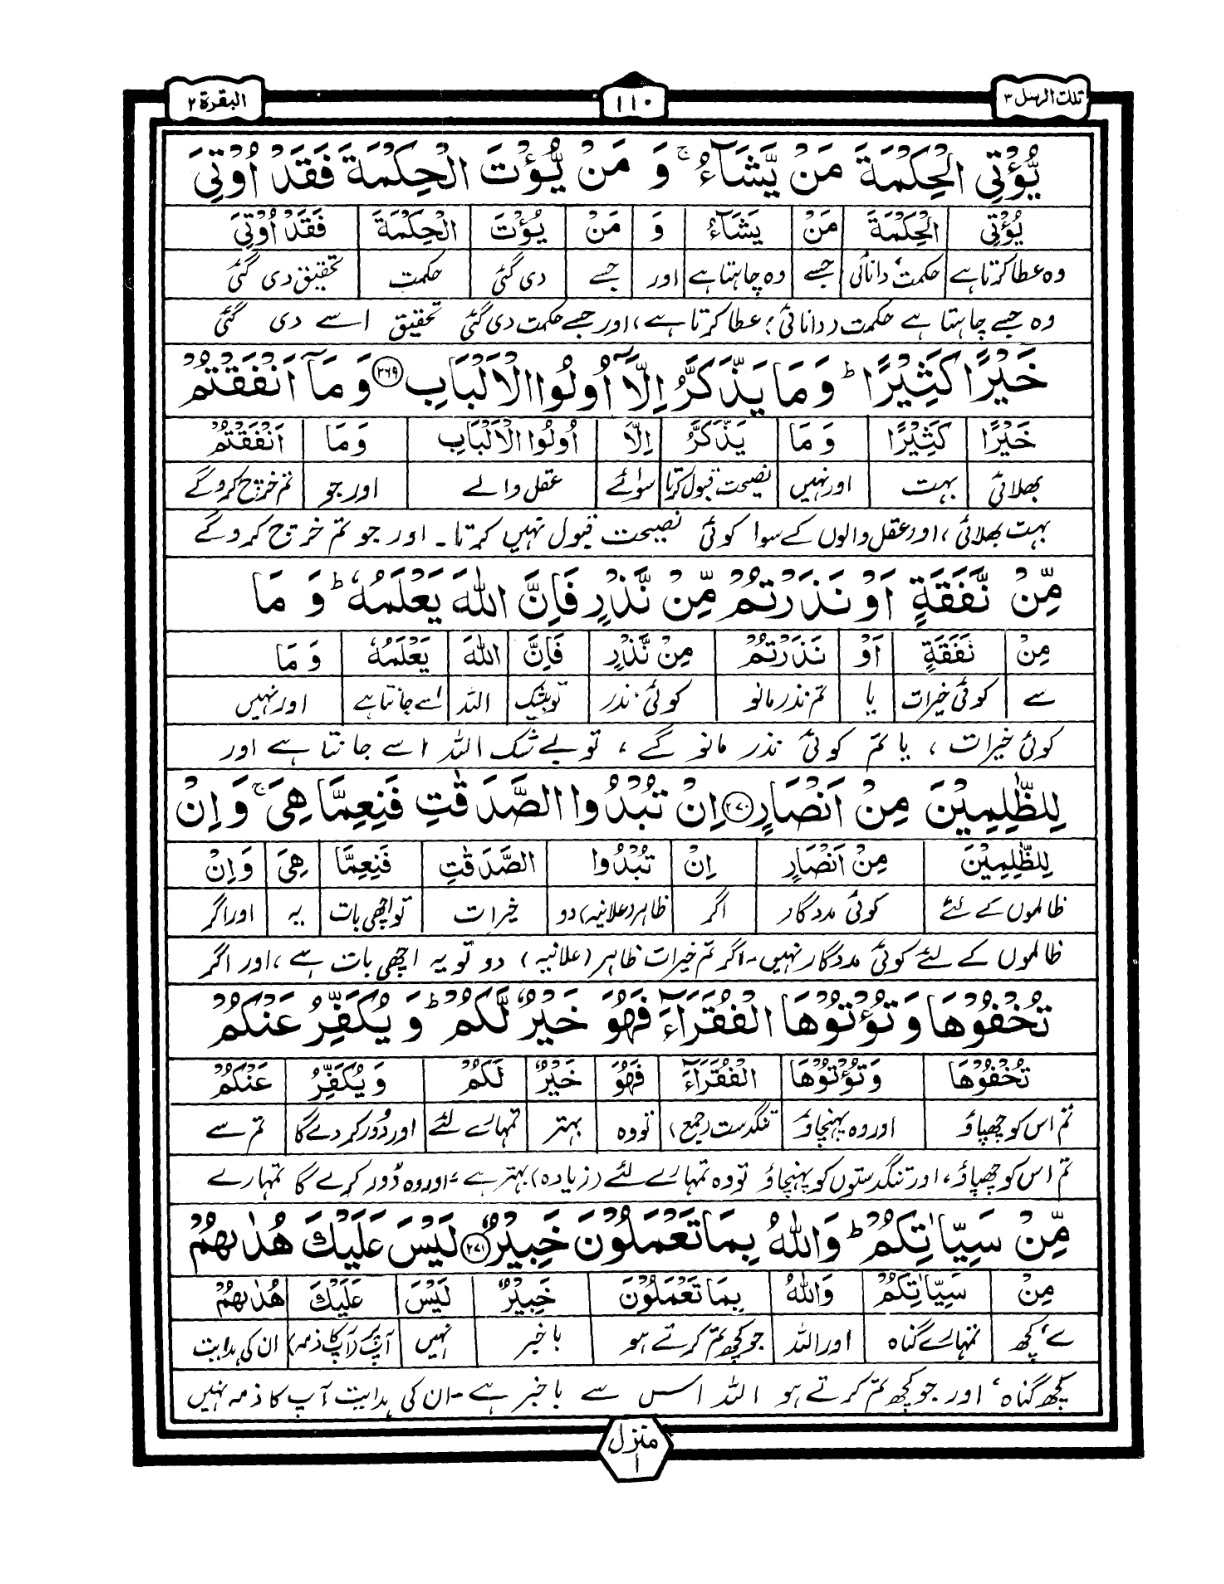 تلك الرسل ٣
١١٠
البقرة ٢
يُّؤْتِى الْحِكْمَةَ مَنْ يَّشَآءُ ۚ وَ مَنْ يُّؤْتَ الْحِكْمَةَ فَقَدْ اُوْتِىَ
يُؤْتِى الْحِكْمَةَ مَنْ يَشَآءُ وَ مَنْ يُؤْتَ الْحِكْمَةَ فَقَدْ اُوْتِىَ
وہ عطا کرتا ہے حکمت، دانائی جسے وہ چاہتا ہے اور جسے دی گئی حکمت تحقیق دی گئی
وہ جسے چاہتا ہے حکمت (دانائی) عطا کرتا ہے، اور جسے حکمت دی گئی تحقیق اسے دی گئی
خَيْرًا كَثِيْرًا ؕ وَ مَا يَذَّكَّرُ اِلَّاۤ اُولُوا الْاَلْبَابِ ۲۶۹ وَ مَاۤ اَنْفَقْتُمْ
خَيْرًا كَثِيْرًا وَ مَا يَذَّكَّرُ اِلَّا اُولُوا الْاَلْبَابِ وَ مَا اَنْفَقْتُمْ
بھلائی بہت اور نہیں نصیحت قبول کرتا سوائے عقل والے اور جو تم خرچ کرو گے
بہت بھلائی، اور عقل والوں کے سوا کوئی نصیحت قبول نہیں کرتا۔ اور جو تم خرچ کرو گے
مِّنْ نَّفَقَةٍ اَوْ نَذَرْتُمْ مِّنْ نَّذْرٍ فَاِنَّ اللّٰهَ يَعْلَمُهٗ ؕ وَ مَا
مِنْ نَفَقَةٍ اَوْ نَذَرْتُمْ مِنْ نَّذْرٍ فَاِنَّ اللّٰهَ يَعْلَمُهٗ وَ مَا
سے کوئی خیرات یا تم نذر مانو کوئی نذر تو بیشک اللہ اسے جانتا ہے اور نہیں
کوئی خیرات، یا تم کوئی نذر مانو گے، تو بے شک اللہ اسے جانتا ہے اور
لِلظّٰلِمِيْنَ مِنْ اَنْصَارٍ ۲۷۰ اِنْ تُبْدُوا الصَّدَقٰتِ فَنِعِمَّا هِىَ ۚ وَ اِنْ
لِلظّٰلِمِيْنَ مِنْ اَنْصَارٍ اِنْ تُبْدُوا الصَّدَقٰتِ فَنِعِمَّا هِىَ وَ اِنْ
ظالموں کے لئے کوئی مددگار اگر ظاہر (علانیہ) دو خیرات تو اچھی بات یہ اور اگر
ظالموں کے لئے کوئی مددگار نہیں۔ اگر تم خیرات ظاہر (علانیہ) دو تو یہ اچھی بات ہے، اور اگر
تُخْفُوْهَا وَ تُؤْتُوْهَا الْفُقَرَآءَ فَهُوَ خَيْرٌ لَّكُمْ ؕ وَ يُكَفِّرُ عَنْكُمْ
تُخْفُوْهَا وَ تُؤْتُوْهَا الْفُقَرَآءَ فَهُوَ خَيْرٌ لَكُمْ وَ يُكَفِّرُ عَنْكُمْ
تم اس کو چھپاؤ اور وہ پہنچاؤ تنگدست (جمع) تو وہ بہتر تمہارے لئے اور دُور کر دے گا تم سے
تم اس کو چھپاؤ، اور تنگدستوں کو پہنچاؤ تو وہ تمہارے لئے (زیادہ) بہتر ہے، اور وہ دُور کرے گا تمہارے
مِّنْ سَيِّاٰتِكُمْ ؕ وَ اللّٰهُ بِمَا تَعْمَلُوْنَ خَبِيْرٌ ۲۷۱ لَيْسَ عَلَيْكَ هُدٰىهُمْ
مِنْ سَيِّاٰتِكُمْ وَ اللّٰهُ بِمَا تَعْمَلُوْنَ خَبِيْرٌ لَيْسَ عَلَيْكَ هُدٰىهُمْ
سے، کچھ تمہارے گناہ اور اللہ جو کچھ تم کرتے ہو باخبر نہیں آپ پر (آپ کا ذمہ) ان کی ہدایت
کچھ گناہ، اور جو کچھ تم کرتے ہو اللہ اس سے باخبر ہے۔ ان کی ہدایت آپ کا ذمہ نہیں
منزل
١